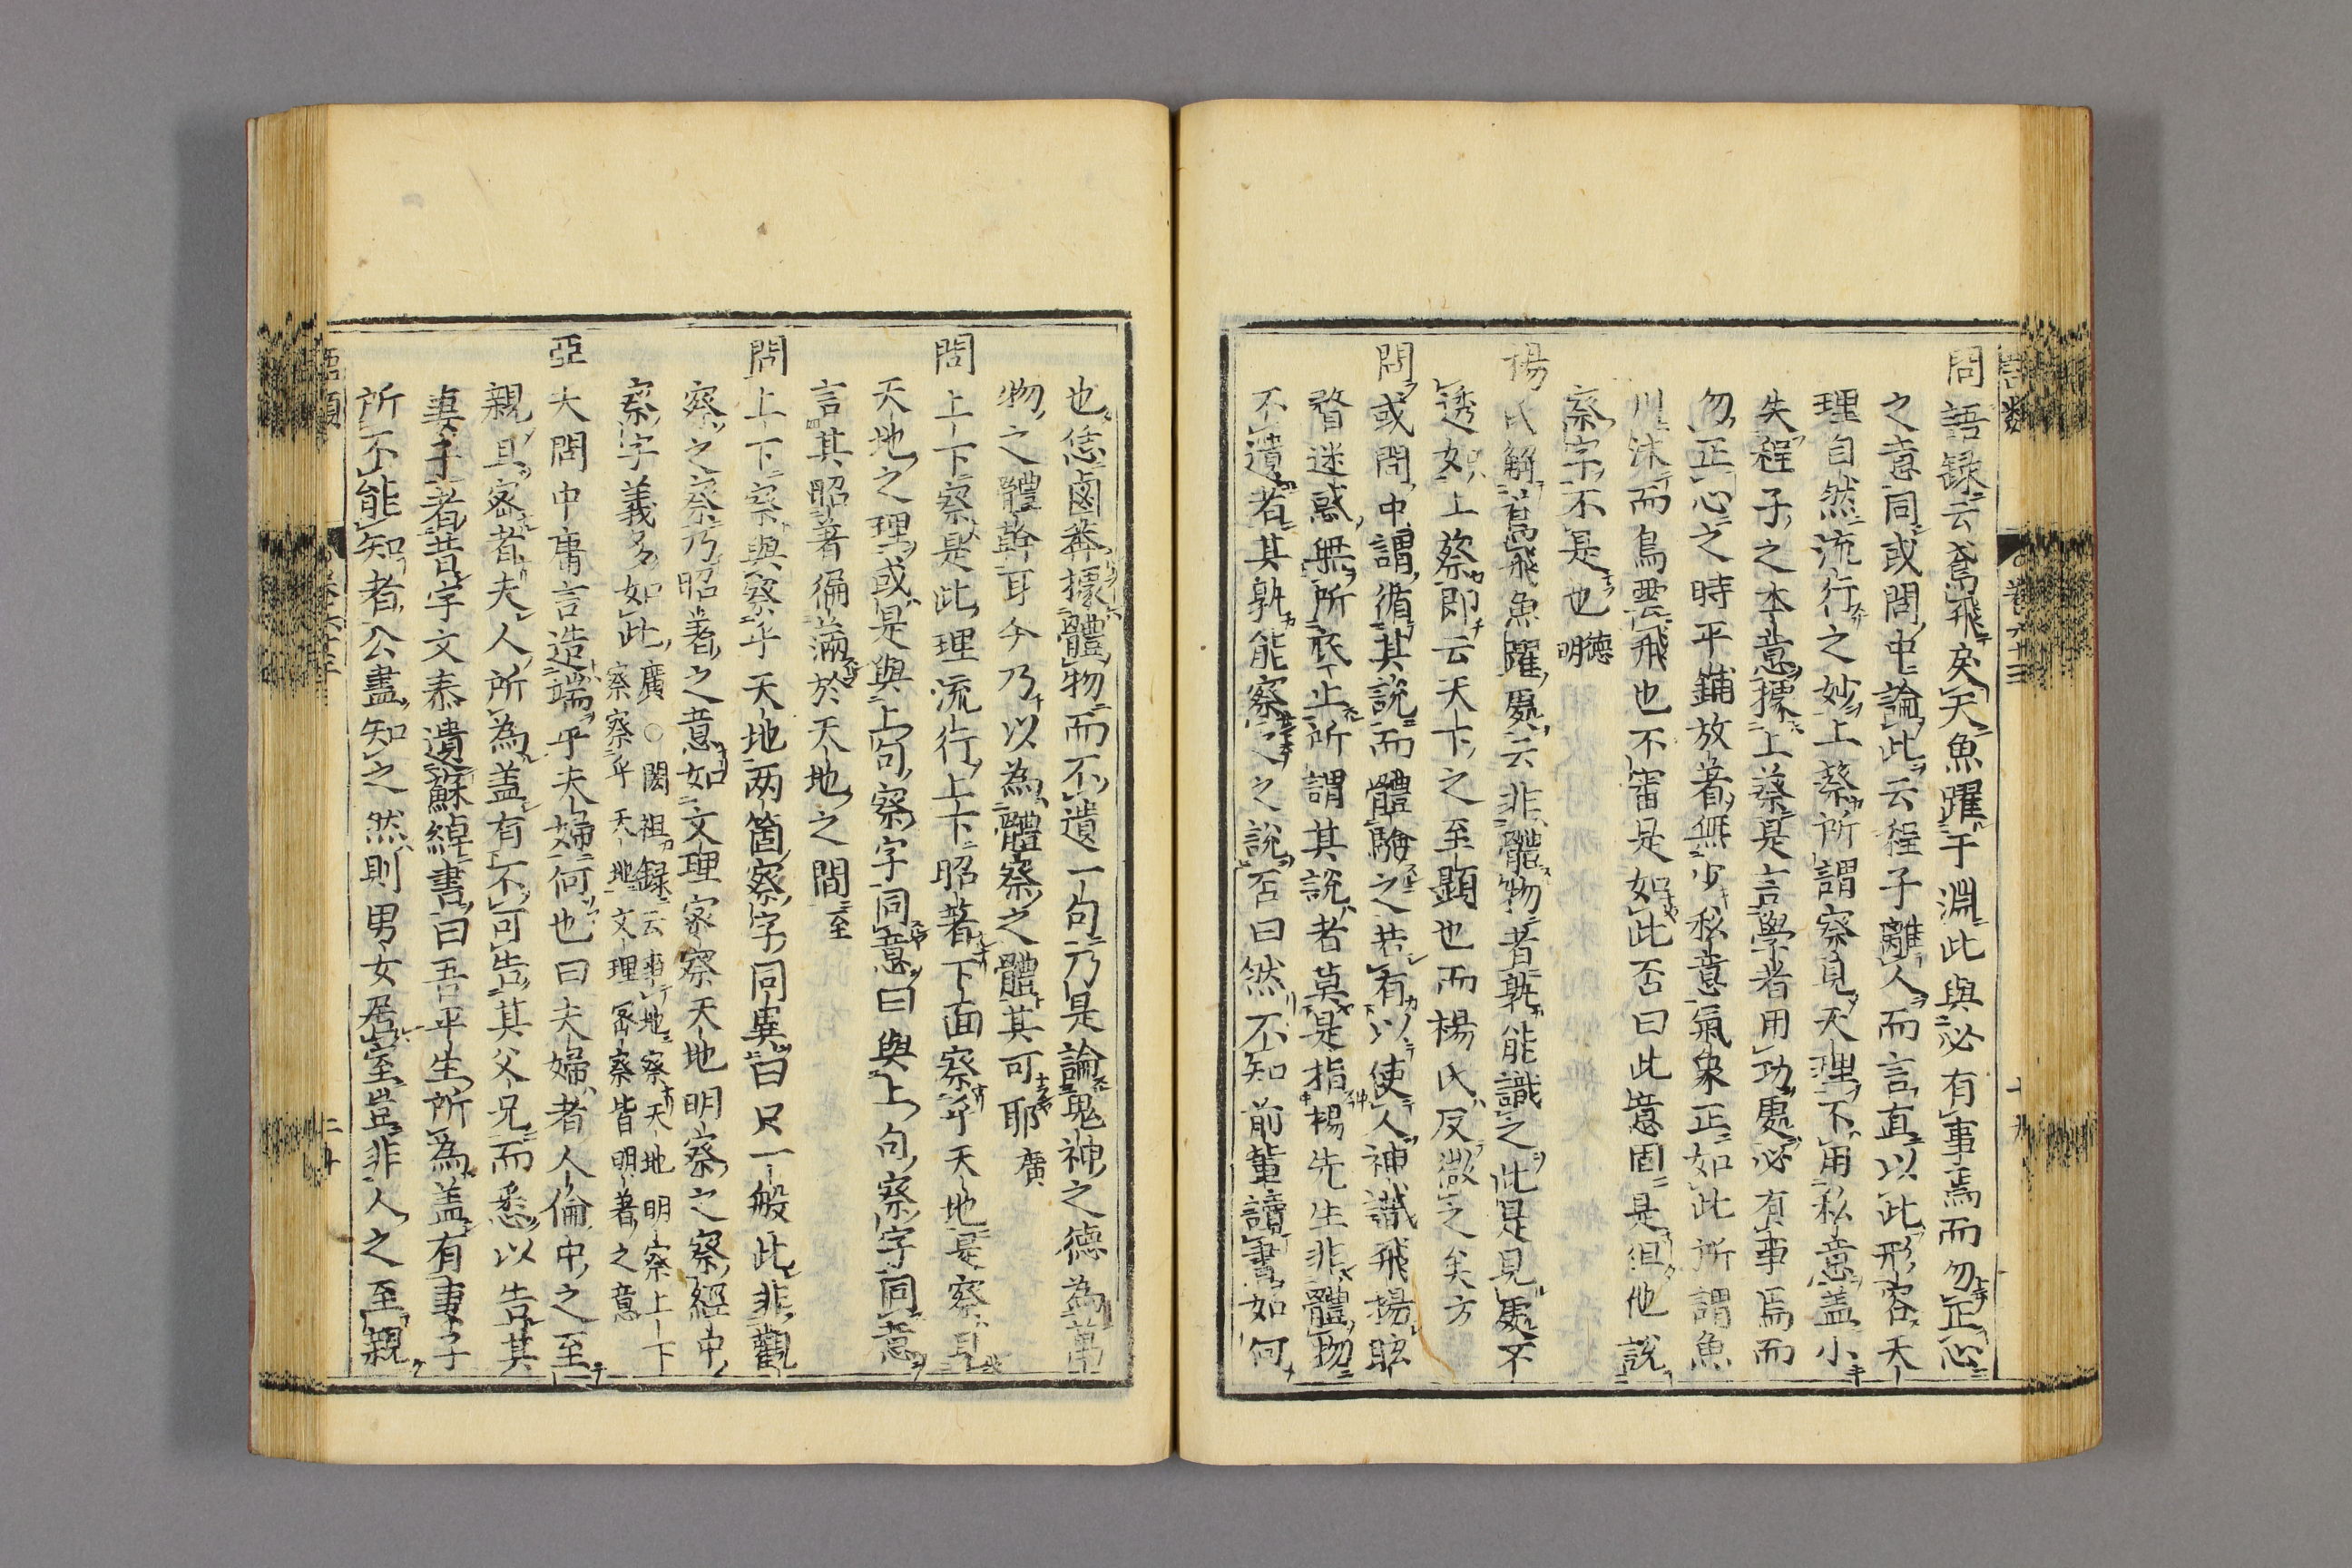 問語録云鳶飛戾天魚躍于淵此與必有事焉而勿正心
之意同或問中論此云程子離人而言直以此形容天
理自然流行之妙上蔡所謂察見天理不用私意盖小
失程子之本意據上蔡是言學者用功處必有事焉而
勿正心之時平鋪放著無少私意氣象正如此所謂魚
川泳而鳥雲飛也不審是如此否曰此意固是但他說
察字不是也德明
楊氏解鳶飛魚躍處云非體物者孰能識之此是見處不
透如上蔡即云天下之至顯也而楊氏反微之矣方
問或問中謂循其說而體驗之若有以使人神識飛揚眩
瞀迷惑無所底止所謂其說者莫是指楊先生非體物
不遺者其孰能察之之說否曰然不知前輩讀書如何
也恁鹵莽據體物而不遺一句乃是論鬼神之德為萬
物之體幹耳今乃以為體察之體其可耶廣
問上下察是此理流行上下昭著下面察乎天地是察
天地之理或是與上句察字同意曰與上句察字同意
言其昭著徧滿於天地之間至
問上下察與察乎天地两箇察字同異曰只一般此非觀
察之察乃昭著之意如文理密察天地明察之察經中
察字義多如此廣○閎祖録云事地察天地明察上下
察察乎天地文理密察皆明著之意
亞夫問中庸言造端乎夫婦何也曰夫婦者人倫中之至
親且密者夫人所為盖有不可告其父兄而悉以告其
妻子者昔宇文泰遺蘇綽書曰吾平生所為盖有妻子
所不能知者公盡知之然則男女居室豈非人之至親